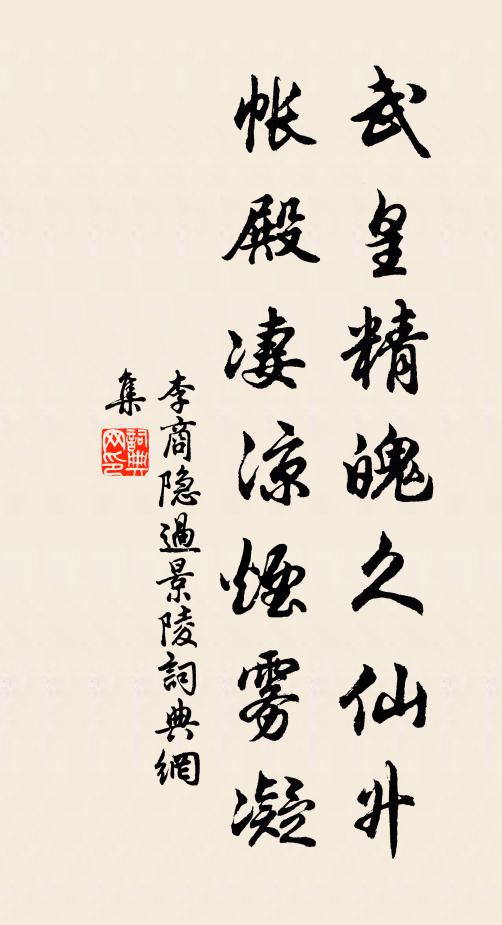 武皇精魄久仙升
帐殿凄凉煙雾凝
李商隐過景陵詞典網
集
詞典网印